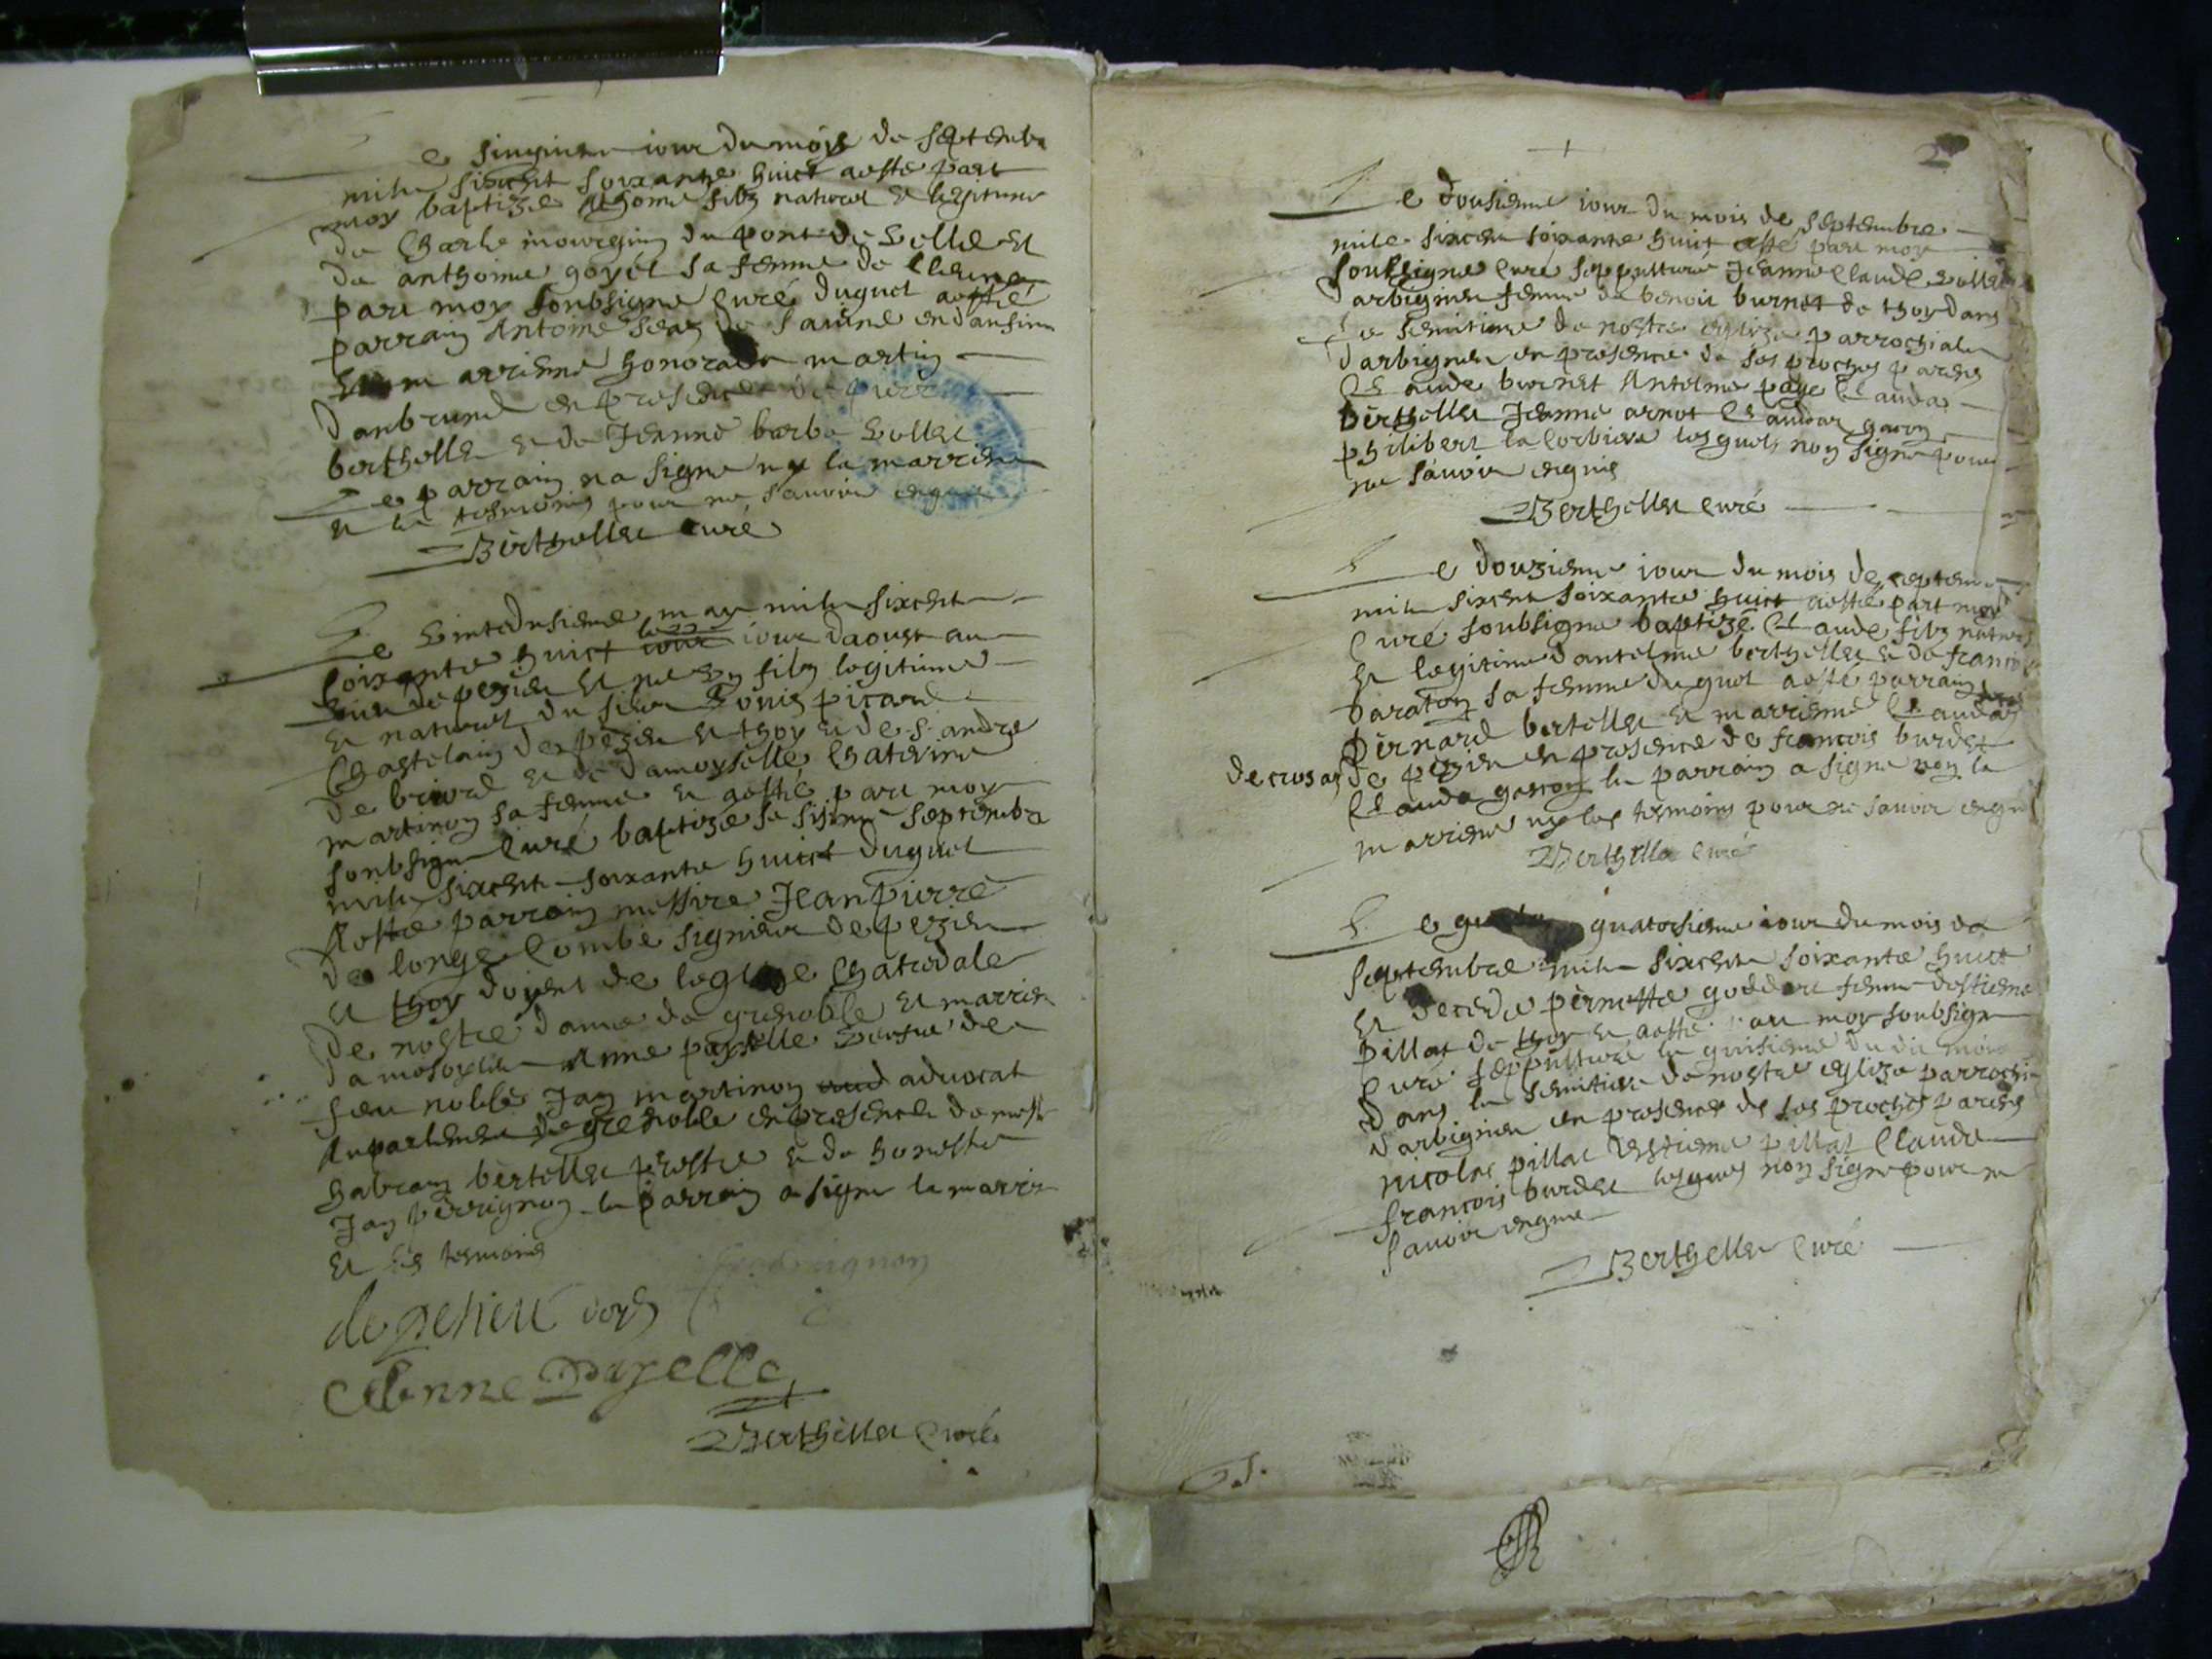 Le sinquiem iour du moys de septemb
mile sixcent soixante huict aesté part
moy baptizé Athoine filz naturel et legitime
de Charle mourgin du pont de velle et
de anthoine goyét sa femme de
pare moy soubsigne Curé duquel aesté
parrain Antoine Jean de
et marrienne honorade martin
Danbrune en presence de pierre
berthelle et de Jeanne barbe
Le parrain na signe ny la marriene
et les tesmoins pour ne savoir enquis
Berthellet curé
Le may mile sixcent
soixante huict le 22 iour daoust au
lieu de pezieu et ne un filz legitime
et naturel du sieur Louis picard
Chastelain de pezieu et thoy et de s. andre
de briord et de damoyselle Chaterine
martinon sa femme et aesté pare moy
soubsigne Curé baptizé le sisime septembre
mile sixcent soixante huict duquel
Aesté parrain messire Jean pierre
de longe Combe signieur de pezieu
et thoy doyent de leglize Chatedale
De nostre dame de grenoble et marrien
damoyselle Anne payelle vefve de
feu noble Jan martinon advocat
Auparlement de grenoble en presence de mesr
habran bertellet prestre et de honeste
Jan perrignon le parrain a signe la marrie
et les tesmoins
de pesieu doyn
Anne Payelle
Berthellet Curé
2
Le dousieme iour du mois de septembre
mile sixcent soixante huit aesté pare moy
soubsigne Curé sepulturé Jeanne Claude
darbignieu femme de benoit burnet de thoy dans
Le semitiere de nostre eglize parrochiale
darbignieu en presence de ses proches parens
Claude burnet Antelme page Clauda
berthellet Jeanne arnot Claudar garon
philibert la Corbiere lesquels non signe pour
ne savoir enquis
Berthellet Curé
Le douzieme iour du mois de septem
mile sixcent soixante huict aesté part moy
Curé soubsigne baptizé Claude filz naturel
et legitime dantelme berthellet et de francois
baraton sa femme duquel aesté parrain
Bernard bertellet et marrienne Clauda
de crosas de pezieu en presence de francois burdet
Clauda garron le parrain a signe non la
marriene ny les tesmoins pour ne savoir enqui
Berthellet Curé
Le quatorsieme iour du mois de
septembre mile sixcent soixante huict
et decede pernette goddere femme destiene
pillat de thoy et aesté pare moy soubsigne
Curé sepulturé le quinsieme du dit mois
Dans le semitiere de nostre eglize parrochi
darbignieu en presence de ses proches parens
nicolas pillat destieme pillat Claude
francois burdet lesquels non signe pour ne
savoir enquis
Berthellet Curé